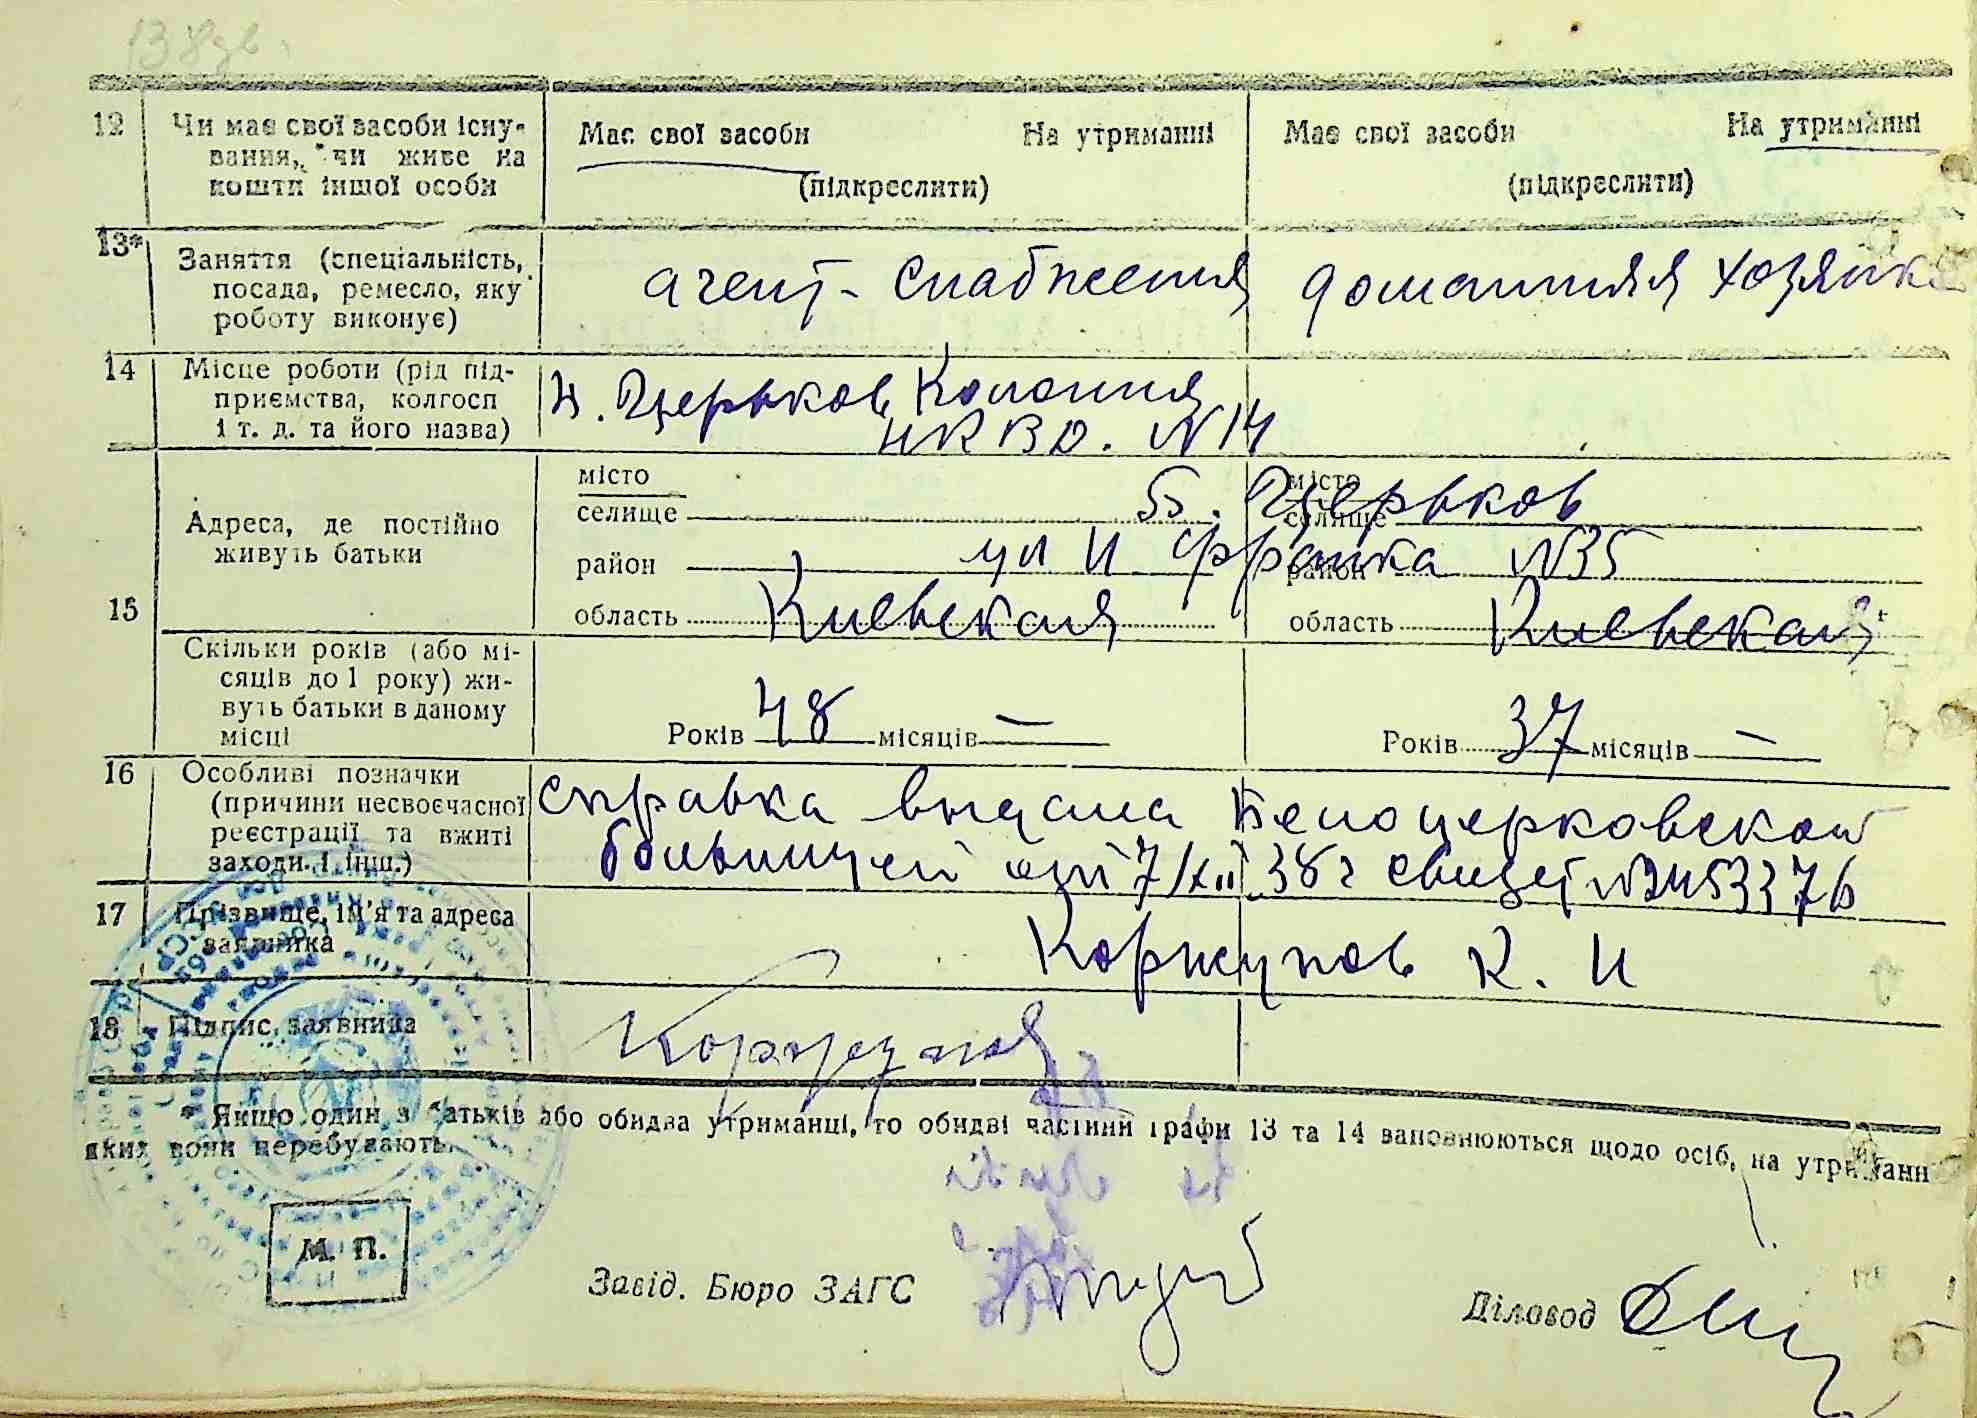 12 Чи має свої засоби існу-
вання, чи живе на
кошти іншої особи
Має свої засоби На утриманні
(підкреслити)
Має свої засоби На утриманні
(підкреслити)
13* Заняття (спеціальність,
посада, ремесло, яку
роботу виконує)
агент-снабжения
домашняя хозяйка
14 Місце роботи (рід під-
приємства, колгосп
і т. д. та його назва)
Церьков Колония
НКВД. №14
15 Адреса, де постійно
живуть батьки
місто
селище
місто
селище
Б. Церьков
район
район
ул И Франка №35
область Киевская
область Киевская
Скільки років (або мі-
сяців до 1 року) жи-
вуть батьки в даному
місці
Років 48 місяців —
Років 37 місяців —
16 Особливі позначки
(причини несвоєчасної
реєстрації та вжиті
заходи і інш.)
справка выдана Белоцерковской
больницей 7/XII 38 г
17 Прізвище, ім'я та адреса
заявника
Коржупов К. И
18 Підпис заявника
* Якщо один з батьків або обидва утриманці, то обидві частини графи 13 та 14 заповнюються щодо осіб, на утриманн
яких вони перебувають.
М. П.
Завід. Бюро ЗАГС
Діловод